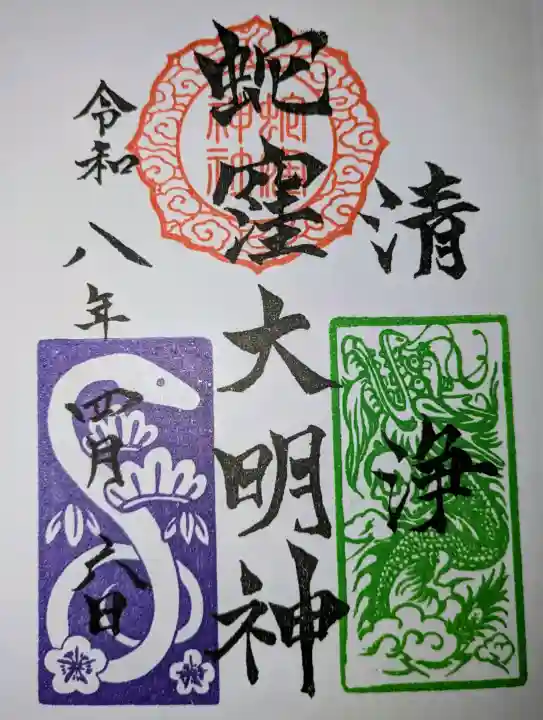 清浄
蛇窪大明神
令和八年四月六日
蛇窪神社